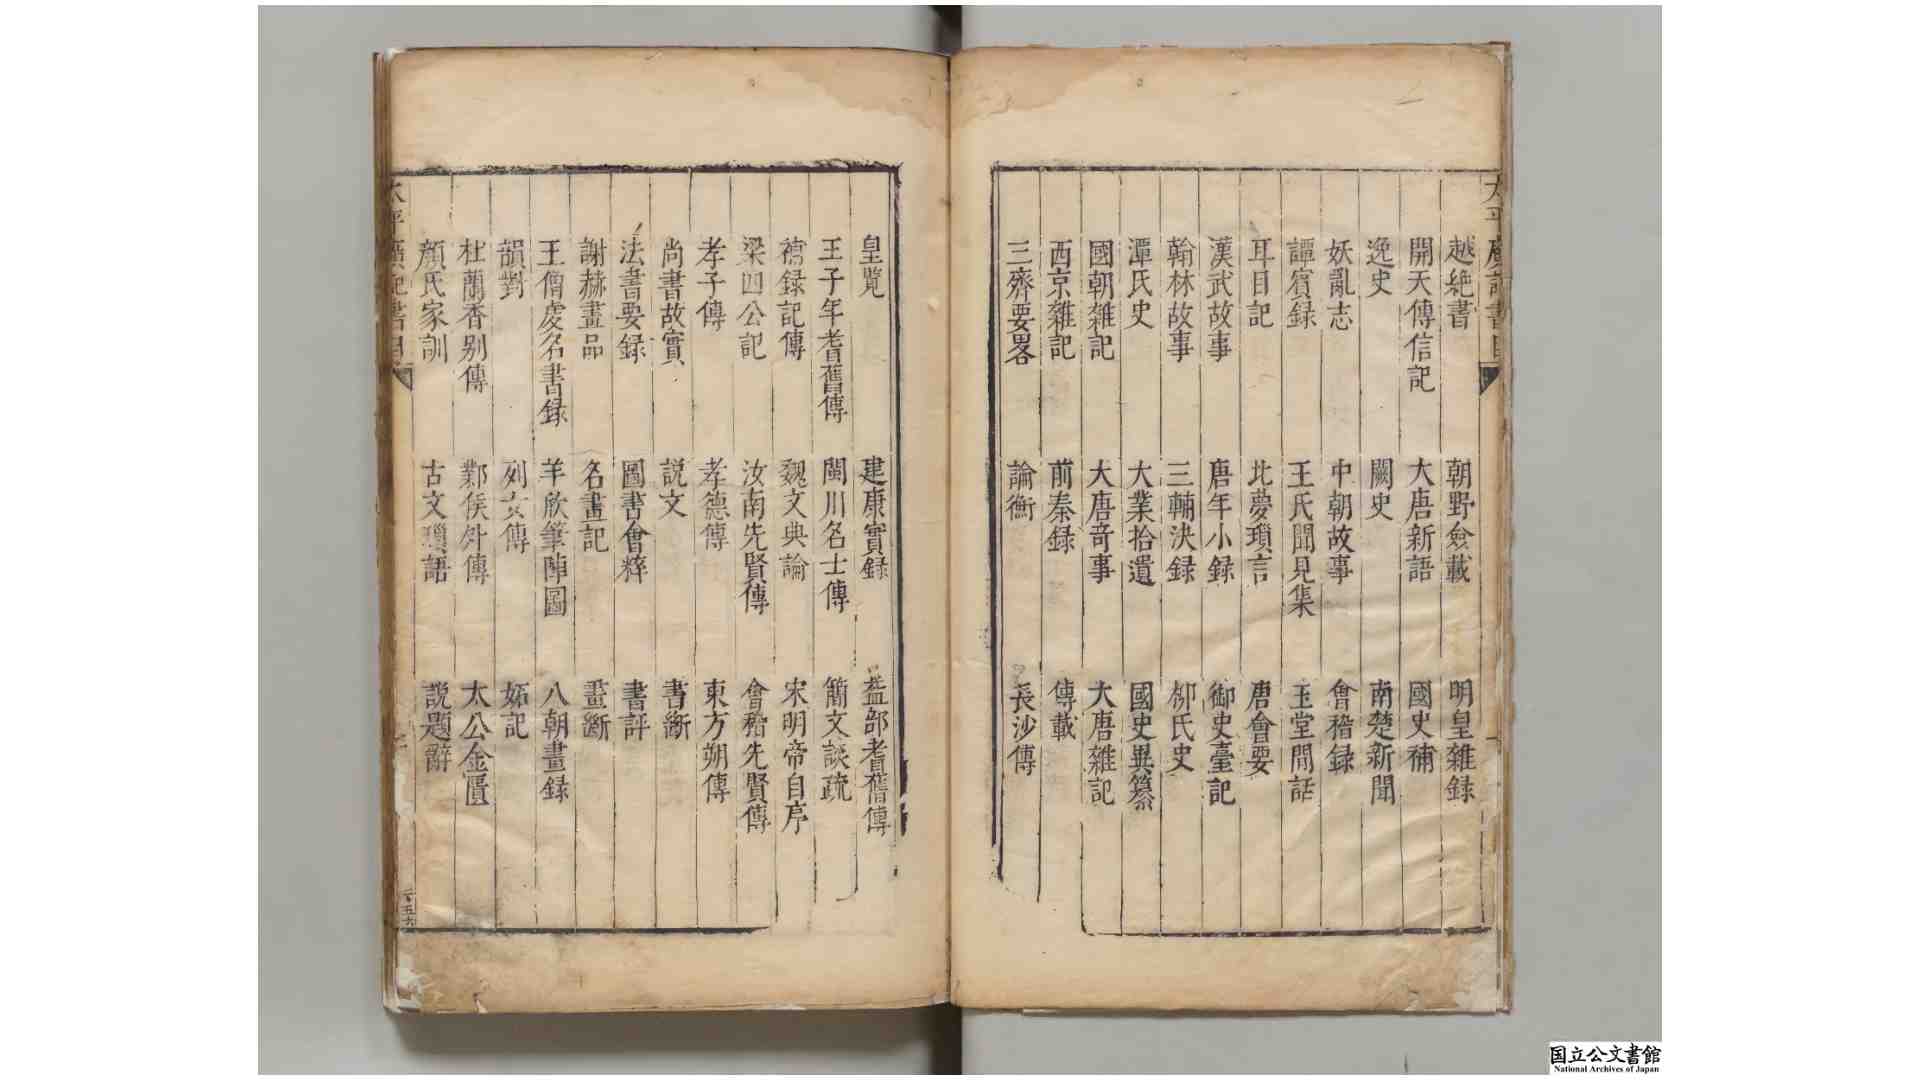 太平廣記書目
越絶書 朝野僉載 明皇雜録
開天傳信記 大唐新語 國史補
逸史 闕史 南楚新聞
妖亂志 中朝故事 會稽録
譚賓録 王氏聞見集 玉堂閒話
耳目記 北夢瑣言 唐會要
漢武故事 唐年小録 御史臺記
翰林故事 三輔決録 柳氏史
潭氏史 大業拾遺 國史異纂
國朝雜記 大唐竒事 大唐雜記
西京雜記 前秦録 傳載
三齊要畧 論衡 長沙傳
皇覽 建康實録 益部耆舊傳
王子年耆舊傳 閩川名士傳 簡文談疏
禱録記傳 魏文典論 宋明帝自序
梁四公記 汝南先賢傳 會稽先賢傳
孝子傳 孝德傳 東方朔傳
尚書故實 説文 書斷
法書要録 圖書會粹 書評
謝赫畫品 名畫記 畫斷
王僧虔名書録 羊欣筆陣圖 八朝畫録
韻對 列女傳 妬記
杜蘭香别傳 鄴侯外傳 太公金匱
顔氏家訓 古文瑣語 説題辭
太平廣記書目
国立公文書館
National Archives of Japan